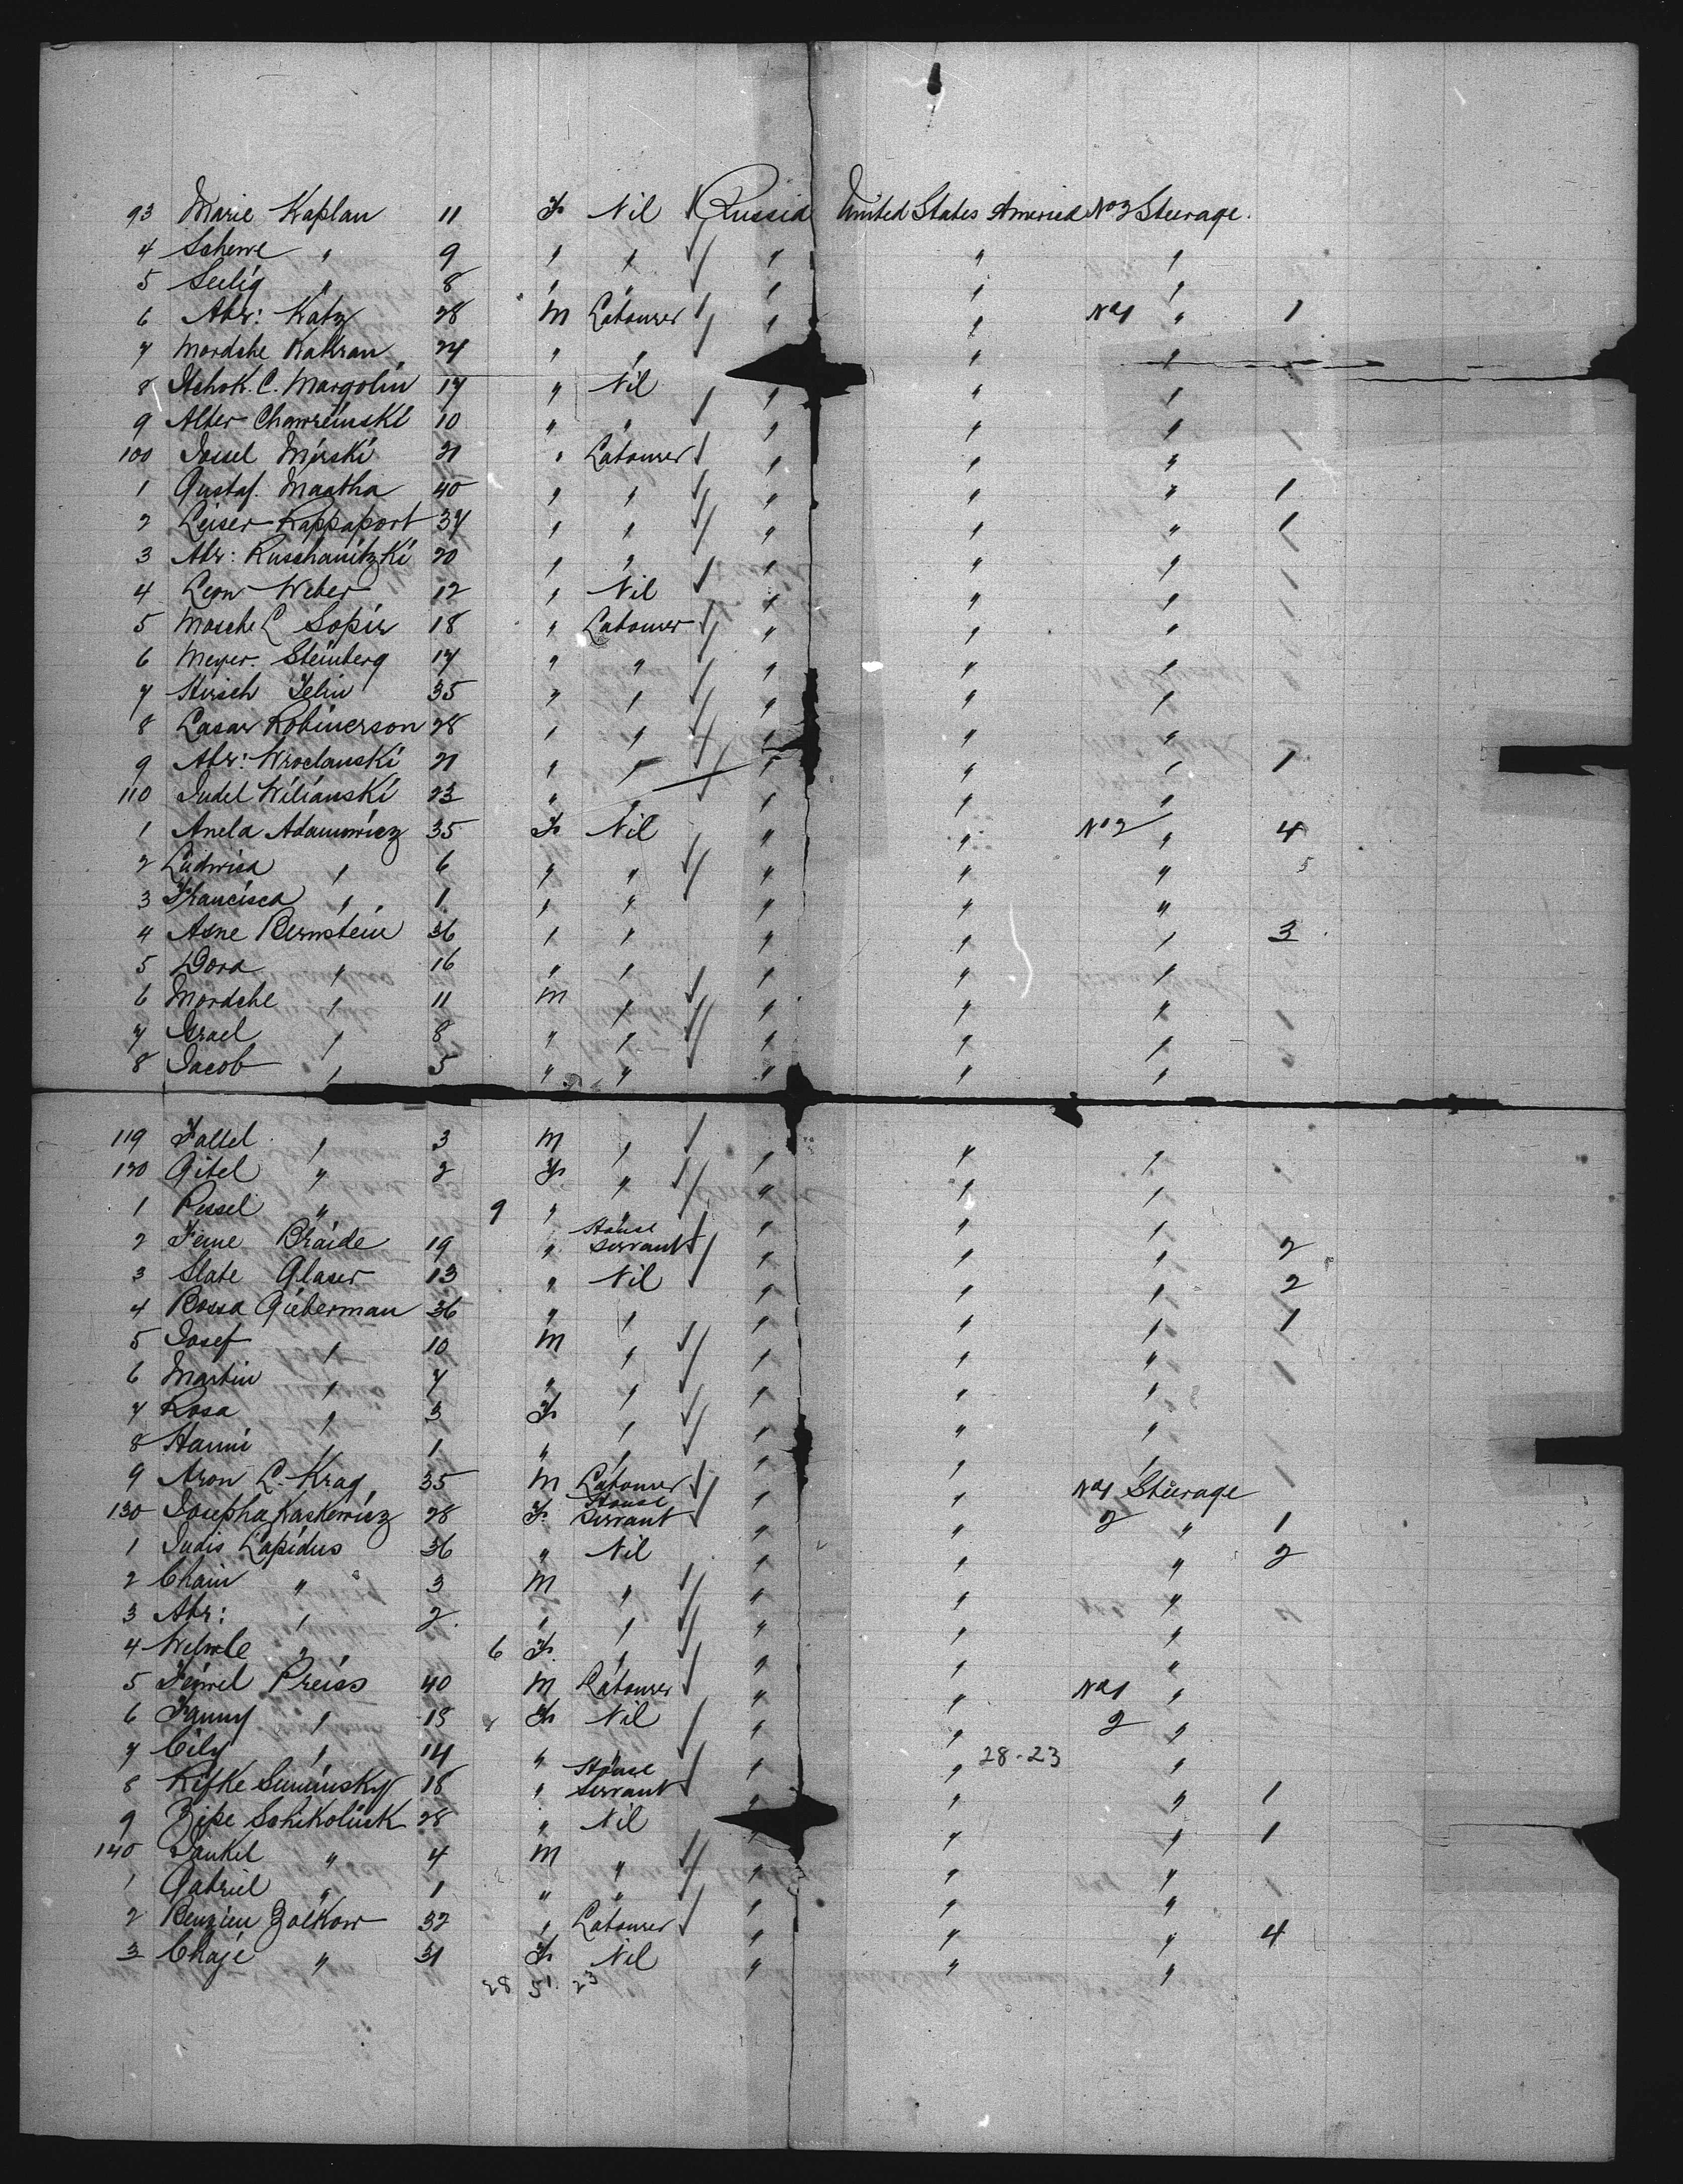 93 Marie Kaplan 11 F Nil Russia United States America No 3 Steerage.
4 Schewe " 9 " " " " "
5 Seelig " 8 " " " " "
6 Abr: Katz 28 M Labourer " " No 1 " 1
7 Mordche Katzan 24 " " " " "
8 Itchok. C. Margolin 17 " Nil " " "
9 Alter Chawreinski 10 " " " " "
100 Jossel Mirski 21 " Labourer " " "
1 Gustaf. Maatha 40 " " " " " 1
2 Leiser Rappaport 37 " " " " " 1
3 Abr: Ruschanitzki 20 " " " " "
4 Leon Weber 12 " Nil " " "
5 Mosche L Sopir 18 " Labourer " " "
6 Meyer. Steinberg 17 " " " " "
7 Hirsch Jelin 35 " " " " "
8 Lasar Robinerson 28 " " " " "
9 Abr: Wroclanski 21 " " " " " 1
110 Judel Wilianski 23 " " " " "
1 Anela Adamowicz 35 F Nil " " No 2 " 4
2 Ludwisa " 6 " " " " "
3 Francisca " 1 " " " " "
4 Asne Bernstein 36 " " " " " 3
5 Dora " 16 " " " " "
6 Mordche " 11 M " " " "
7 Israel " 8 " " " " "
8 Jacob " 5 " " " " "
119 Faltel " 3 M " " " "
120 Gitel " 2 F " " " "
1 Pessel " 9 " " " " "
2 Feine Braide 19 " House Servant " " " 2
3 Slate Glaser 13 " Nil " " " 2
4 Bossa Gieberman 36 " " " " " 1
5 Josef " 10 M " " " "
6 Martin " 7 " " " " "
7 Rosa " 3 F " " " "
8 Hanni " 1 " " " " "
9 Aron L. Krag 35 M Labourer " " No 1 Steerage
130 Josepha Kaskewicz 28 F House Servant " " 2 " 1
1 Judis Lapidus 36 " Nil " " " 2
2 Chain " 3 M " " " "
3 Abr: " 2 " " " " "
4 " 6 F " " " "
5 Feiwel Preiss 40 M Labourer " " No 1 "
6 Fanny " 18 F Nil " " 2 "
7 Cily " 14 " " " 28-23 "
8 Rifke Suminsky 18 " House Servant " " " 1
9 Zipe Schikolnik 28 " Nil " " " 1
140 Jankel " 4 M " " " "
1 Gabriel " 1 " " " " "
2 Benzien Zolkow 32 " Labourer " " " 4
3 Chaje " 31 F Nil " " "
28 51. 23